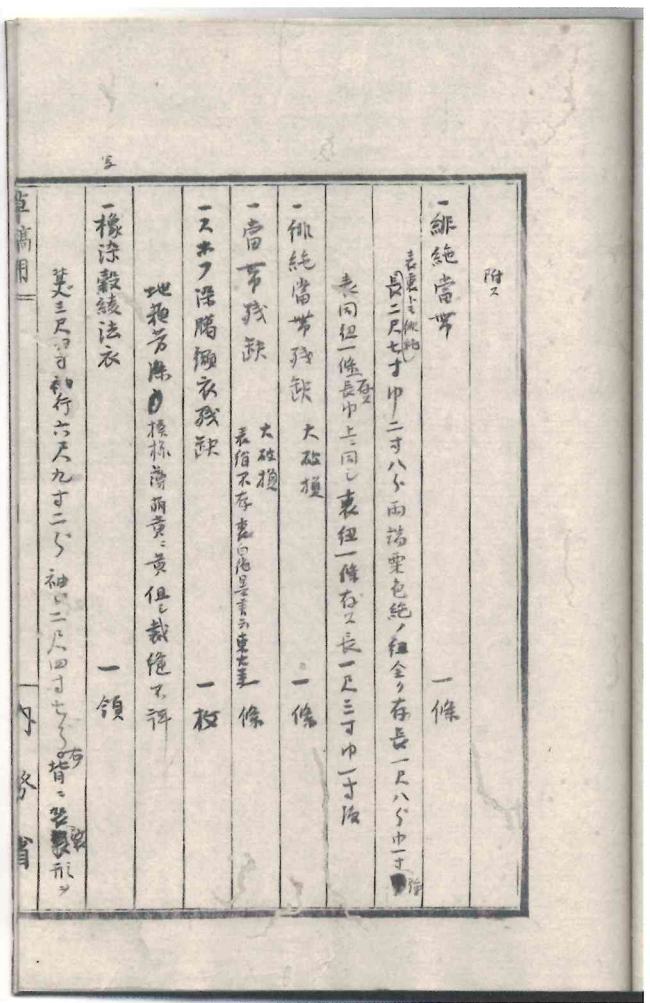 附ス
一緋絁當帯 一條
表裏トモ緋絁
長二尺七寸巾二寸八分両端栗色絁ノ紐全ク存長一尺八分巾一寸強
表同紐一條存ス長巾上ニ同シ裏紐一條存ス長一尺三寸巾一寸
一緋絁當帯残缺 大破損 一條
一當帯残缺 大破損 一條
表 不存裏白 東大寺
一スホフ染臈纈衣残缺 一枚
地蘓芳染 模様薄萌黄ニ黄但シ裁縫不詳
一橡染縠綾法衣 一領
丈三尺 寸 行六尺九寸二分袖 二尺四寸七分 背ニ 形ヲ
草稿用
内務省